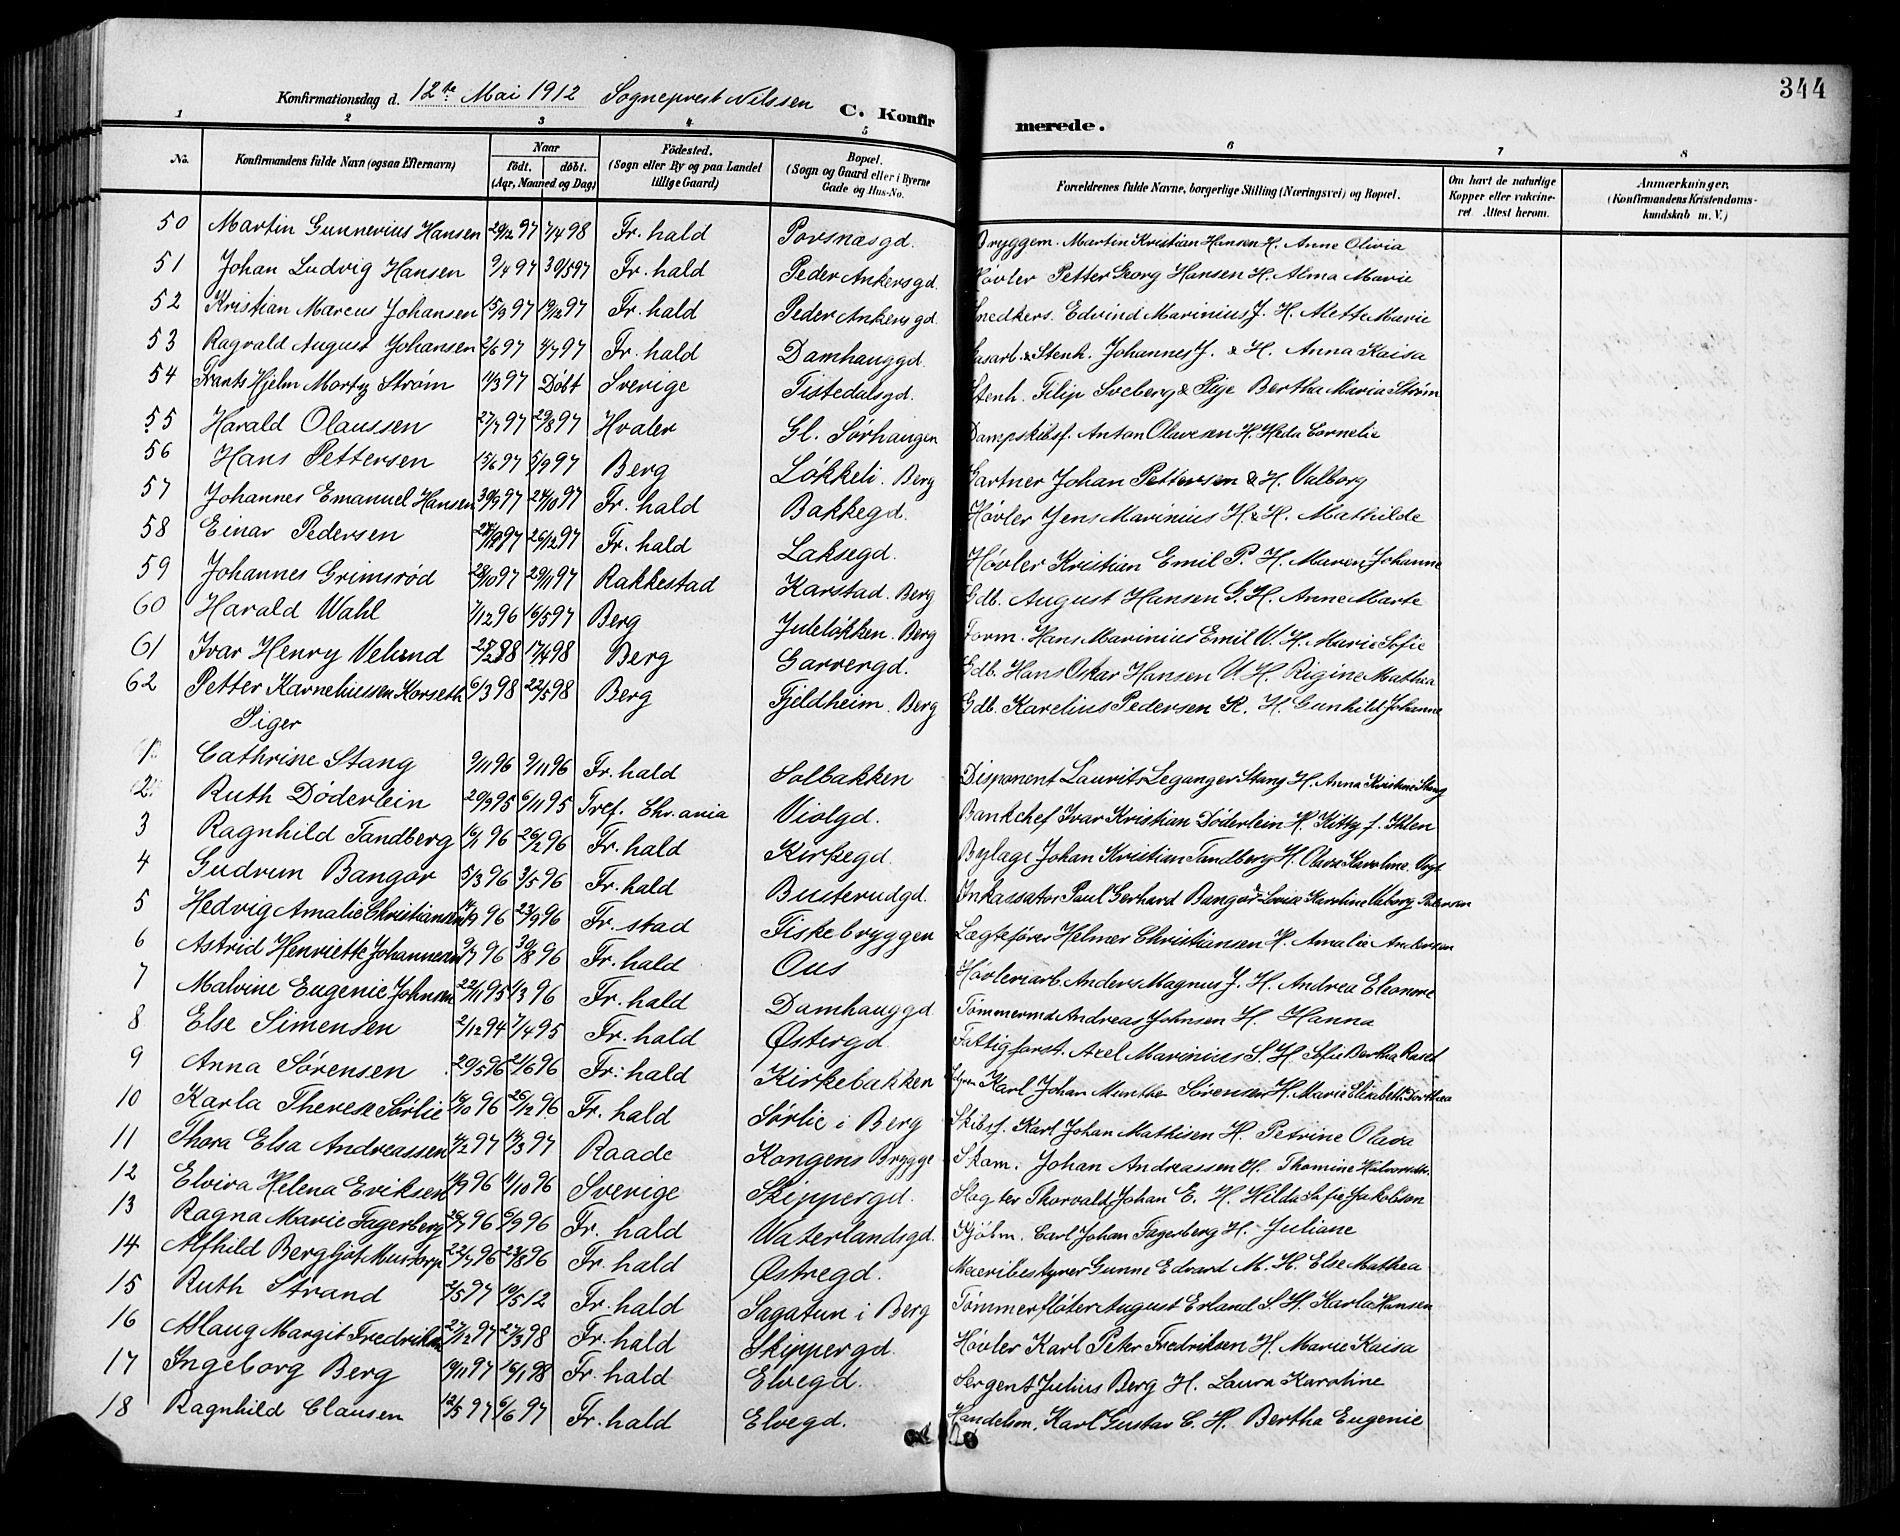 344
Konfirmationsdag d. 12te Mai 1912 Sogneprest Nilssen
C. Konfirmerede.
1 2 3 4 5 6 7 8
No. Konfirmandens fulde Navn (ogsaa Efternavn) Naar födt. döbt. (Aar, Maaned og Dag) Födested. (Sogn eller By og paa Landet tillige Gaard) Bopæl. (Sogn og Gaard eller i Byerne Gade og Hus-No. Forældrenes fulde Navne, borgerlige Stilling (Næringsvei) og Bopæl. Om havt de naturlige Kopper eller vakcineret. Attest herom. Anmærkninger, (Konfirmandens Kristendomskundskab m. V.)
50 Martin Gunnerius Hansen 29/12 97 7/4 98 Fr. hald Porsnæsgd. Bryggem. Martin Kristian Hansen H. Anne Olivia
51 Johan Ludvig Hansen 9/4 97 30/5 97 Fr. hald Peder Ankersgd. Høvler Petter Georg Hansen H. Alma Marie
52 Kristian Marcus Johansen 15/9 97 19/12 97 Fr. hald Peder Ankersgd. Snedkers. Edvind Marinius J. H. Mette Marie
53 Ragvald August Johansen 2/6 97 4/7 97 Fr. hald Damhauggd. Gasarb. & Stenh. Johannes J. & H. Anna Kaisa
54 Frants Hjelm Mortz Strøm 11/3 97 Döbt Sverige Tistedalsgd. Stenh. Filip Soeberg & Pige Bertha Maria Strøm
55 Harald Olaussen 27/7 97 29/8 97 Hvaler Gl. Sørhaugen Dampskibsf. Anton Olavesen H. Heda Cornelie
56 Hans Pettersen 15/6 97 5/9 97 Berg Løkkeli. Berg Gartner Johan Pettersen & H. Valborg
57 Johannes Emanuel Hansen 30/9 97 24/10 97 Fr. hald Bakkegd. Høvler Jens Marinius H. & H. Mathilde
58 Einar Pedersen 97 26/12 97 Fr. hald Laksegd. Høvler Kristian Emil P. H. Maren Johanne
59 Johannes Grimsrød 28/10 97 29/11 97 Rakkestad Karstad. Berg Gdb. August Hansen G. H. Anne Marte
60 Harald Wahl 7/12 96 16/5 97 Berg Juteløkken. Berg Form. Hans Marinius Emil W. H. Marie Sofie
61 Ivar Henry Velund 25/2 98 17/4 98 Berg Garvergd. Gdb. Hans Oskar Hansen V. H. Rigine Mathea
62 Petter Karneliussen Korseth 6/3 98 22/5 98 Berg Fjeldheim. Berg Gdb. Karelius Pedersen K. H. Gunhild Johanne
Piger
1. Cathrine Stang 9/11 96 9/11 96 Fr. hald Solbakken Disponent Laurits Leganger Stang H. Anna Kristine Stang
2. Ruth Døderlein 20/9 95 6/11 95 Tref. Chr. ania Violgd. Bankchef Ivar Kristian Døderlein H. Kitty f. Ihlen
3 Ragnhild Tandberg 16/1 96 26/2 96 Fr. hald Kirkegd. Bylæge Johan Kristian Tandberg H. Olava Karoline Vogt
4 Gudrun Bangor 5/3 96 3/5 96 Fr. hald Busterudgd. Inkassator Paul Gerhard Bangor & Lovise Karoline Valborg Pedersen
5 Hedvig Amalie Christiansen 14/9 96 23/9 96 Fr. stad Fiskebryggen Lægtefører Helmer Christiansen H. Amalie Andersen
6 Astrid Henriette Johannesen 9/7 96 30/8 96 Fr. hald Ous Høvleriarb. Anders Magnus J. H. Andrea Eleonore
7 Malvine Eugenie Johnsen 22/11 95 1/3 96 Fr. hald Damhauggd Tømmermd Andreas Johnsen H. Hanna
8 Else Simensen 2/12 94 7/4 95 Fr. hald Østergd. Fattigforst. Axel Marinius S. H. Sofie Bertha Rosel
9 Anna Sørensen 20/5 96 21/6 96 Fr. hald Kirkebakken Karl Johan Munthe Sørensen H. Marie Elisabeth Dorthea
10 Karla Therese Sørlie 18/10 96 26/12 96 Fr. hald Sørlie i Berg Skibsf. Karl Johan Mathisen H. Petrine Olava
11 Thora Elsa Andreassen 4/2 97 14/3 97 Raade Kongens Brygge Skom. Johan Andreassen H. Thomine Halvorsdtr.
12 Elvira Helena Eriksen 14/9 96 4/10 96 Sverige Skippergd. Slagter Thorvald Johan E. H. Hilda Sofie Jakobsen
13 Ragna Marie Fagerberg 26/7 96 6/9 96 Fr. hald Waterlandsgd. Sjøm. Carl Johan Fagerberg H. Juliane
14 Alfhild Bergljot Mustorp 22/7 96 23/8 96 Fr. hald Østregd. Meieribestyrer Gunne Edvard M. H. Else Mathea
15 Ruth Strand 2/5 97 10/5 12 Fr. hald Sagatun i Berg Tømmerfløter August Erland S. H. Karla Hansen
16 Aslaug Margit Fredriksen 27/12 97 27/3 98 Fr. hald Skippergd. Høvler Karl Peter Fredriksen H. Marie Kaisa
17 Ingeborg Berg 14/11 97 16/1 98 Fr. hald Elvegd. Sergent Julius Berg H. Laura Karoline
18 Ragnhild Clausen 12/5 97 6/6 97 Fr. hald Elvegd. Handelsm. Karl Gustav C. H. Bertha Eugenie